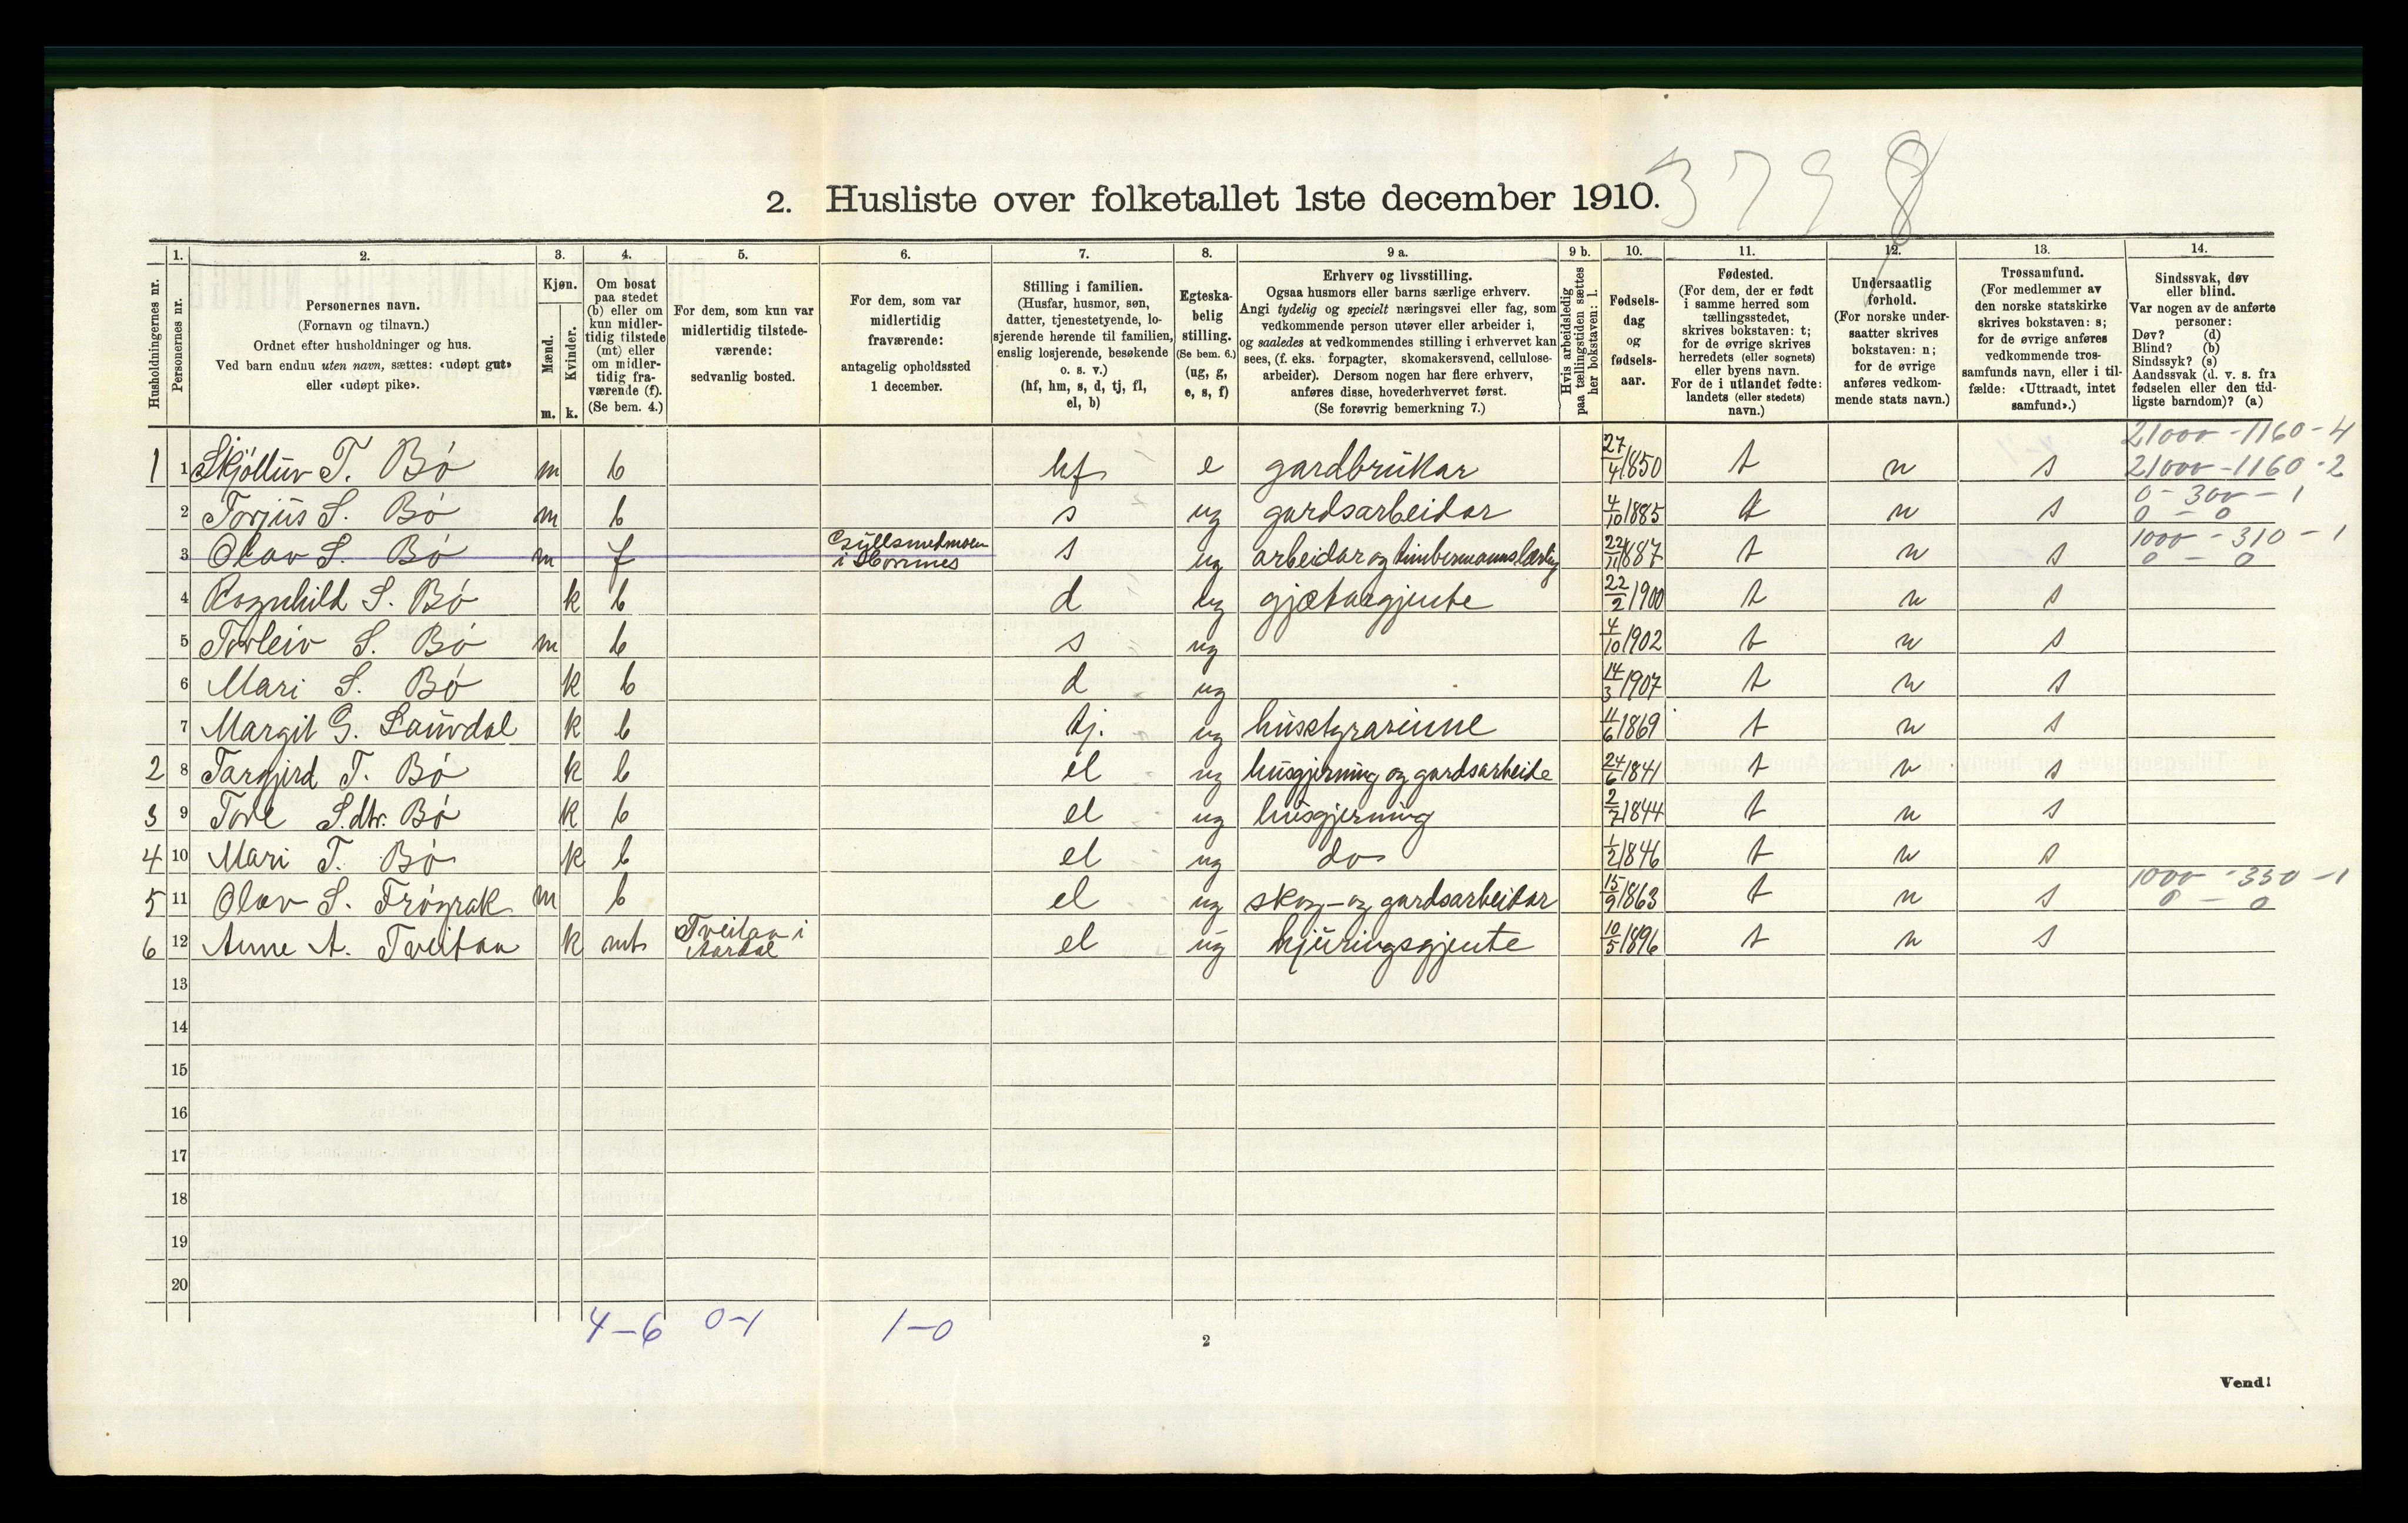 3798
2. Husliste over folketallet 1ste december 1910.
Husholdningernes nr.
1. Personernes nr.
2. Personernes navn.
(Fornavn og tilnavn.)
Ordnet efter husholdninger og hus.
Ved barn endnu uten navn, sættes: «udøpt gut»
eller «udøpt pike».
3. Kjøn.
Mænd. m.
Kvinder. k.
4. Om bosat
paa stedet
(b) eller om
kun midler-
tidig tilstede
(mt) eller
om midler-
tidig fra-
værende (f).
(Se bem. 4.)
5. For dem, som kun var
midlertidig tilstede-
værende:
sedvanlig bosted.
6. For dem, som var
midlertidig
fraværende:
antagelig opholdssted
1 december.
7. Stilling i familien.
(Husfar, husmor, søn,
datter, tjenestetyende, lo-
sjerende hørende til familien,
enslig losjerende, besøkende
o. s. v.)
(hf, hm, s, d, tj, fl,
el, b)
8. Egteska-
belig
stilling.
(Se bem. 6.)
(ug, g,
e, s, f)
9 a. Erhverv og livsstilling.
Ogsaa husmors eller barns særlige erhverv.
Angi tydelig og specielt næringsvei eller fag, som
vedkommende person utøver eller arbeider i,
og saaledes at vedkommendes stilling i erhvervet kan
sees, (f. eks. forpagter, skomakersvend, cellulose-
arbeider). Dersom nogen har flere erhverv,
anføres disse, hovederhvervet først.
(Se forøvrig bemerkning 7.)
9 b. Hvis arbeidsledig
paa tællingstiden sættes
her bokstaven: l.
10. Fødsels-
dag
og
fødsels-
aar.
11. Fødested.
(For dem, der er født
i samme herred som
tællingsstedet,
skrives bokstaven: t;
for de øvrige skrives
herredets (eller sognets)
eller byens navn.
For de i utlandet fødte:
landets (eller stedets)
navn.)
12. Undersaatlig
forhold.
(For norske under-
saatter skrives
bokstaven: n;
for de øvrige
anføres vedkom-
mende stats navn.)
13. Trossamfund.
(For medlemmer av
den norske statskirke
skrives bokstaven: s;
for de øvrige anføres
vedkommende tros-
samfunds navn, eller i til-
fælde: «Uttraadt, intet
samfund».)
14. Sindssvak, døv
eller blind.
Var nogen av de anførte
personer:
Døv? (d)
Blind? (b)
Sindssyk? (s)
Aandssvak (d. v. s. fra
fødselen eller den tid-
ligste barndom)? (a)
1 1 Skjöllúv T. Bö m b hf e gardbrúkar 27/4 1850 t n s 21000-1160-4 21000-1160-2
2 Torjús S. Bö m b s ug gardsarbeidar 4/10 1885 t n s 0-300-1 0-0
3 Olav S. Bö m f Gúllsmedmoen i Hornnes s ug arbeidar og timbermannslærling 22/11 1887 t n s 1000-310-1 0-0
4 Rognhild S. Bö k b d ug gjætargjente 22/2 1900 t n s
5 Torleiv S. Bö m b s ug 4/10 1902 t n s
6 Mari S. Bö k b d ug 14/3 1907 t n s
7 Margit G. Laúvdal k b tj. ug hússtyrarinne 4/6 1869 t n s
2 8 Targjerd T. Bö k b el ug húsgjerning og gardsarbeide 24/6 1841 t n s
3 9 Tone S.dtr. Bö k b el ug húsgjerning 2/7 1844 t n s
4 10 Mari T. Bö k b el ug do 1/2 1846 t n s
5 11 Olav S. Fröyrak m b el ug skog- og gardsarbeidar 15/9 1863 t n s 1000-330-1 0-0
6 12 Anne A. Tveitan k mt Tveitan i Aardal el ug hjúringsgjente 10/5 1896 t n s
13
14
15
16
17
18
19
20
4-6 0-1 1-0
2
Vend!